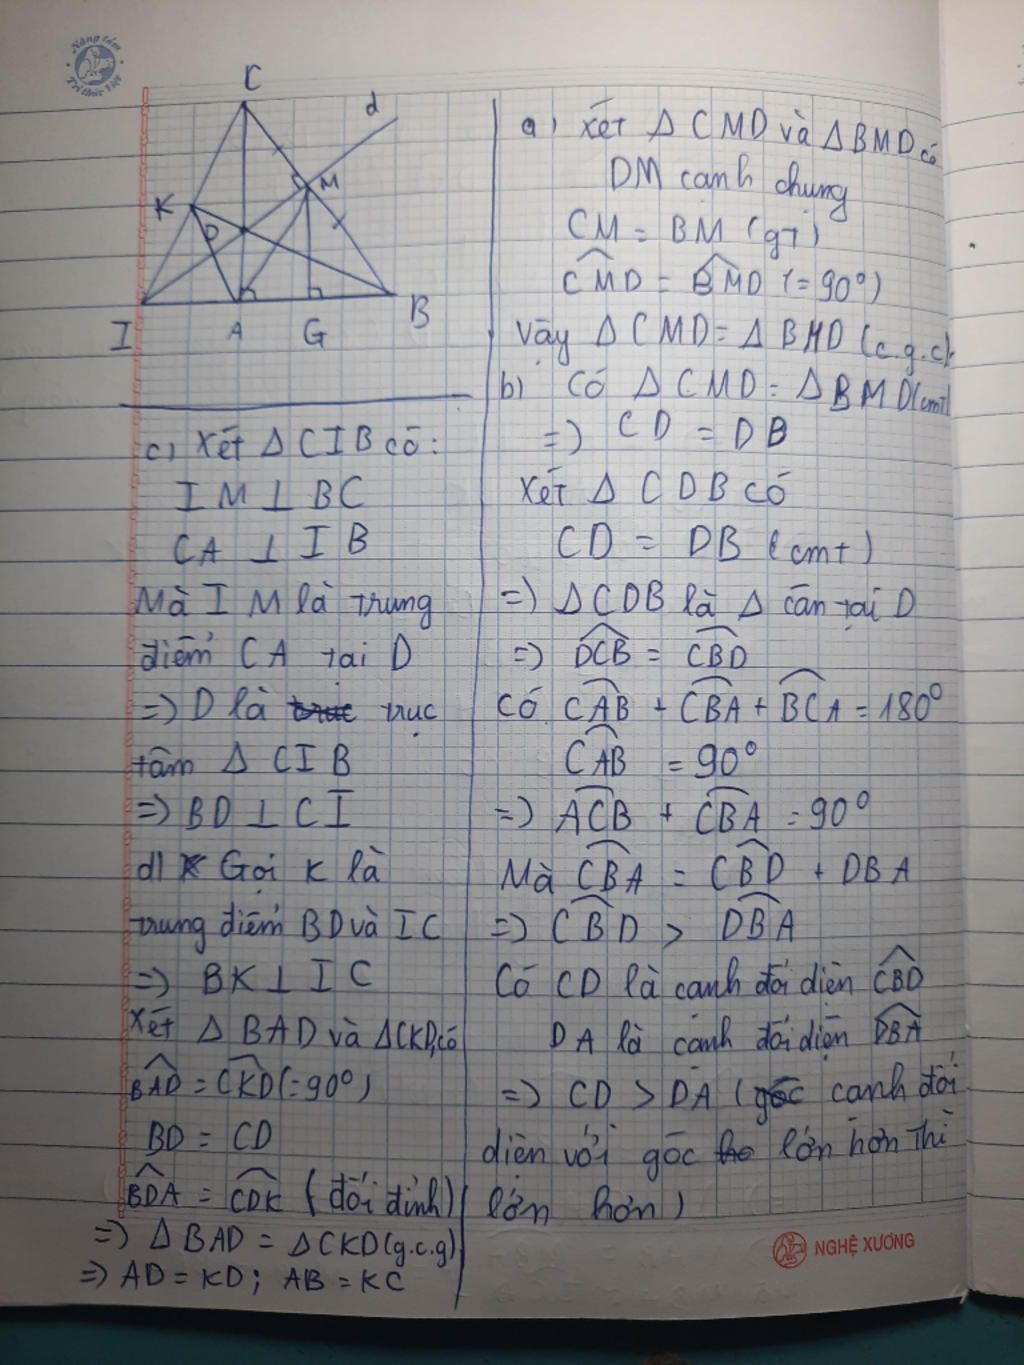 Nâng tầm
Tri thức Việt
C
d
K
M
D
I
A
G
B
a) Xét Δ CMD và Δ BMD có
DM cạnh chung
CM = BM (gt)
CMD = BMD (= 90°)
Vậy Δ CMD = Δ BMD (c.g.c)
b) Có Δ CMD = Δ BMD (cmt)
=) CD = DB
Xét Δ CDB có
CD = DB (cmt)
=) ΔCDB là Δ cân tại D
=) DCB = CBD
Có CAB + CBA + BCA = 180°
CAB = 90°
=) ACB + CBA = 90°
Mà CBA = CBD + DBA
=) CBD > DBA
Có CD là cạnh đối diện CBD
DA là cạnh đối diện DBA
=) CD > DA (góc cạnh đối
diện với góc lớn hơn thì
lớn hơn)
c) Xét Δ CIB có:
IM ⊥ BC
CA ⊥ IB
Mà IM là trung
điểm CA tại D
=) D là trực trực
tâm Δ CIB
=) BD ⊥ CI
d) K Gọi K là
trung điểm BD và IC
=) BK ⊥ IC
Xét Δ BAD và ΔCKD, có
BAD = CKD (= 90°)
BD = CD
BDA = CDK (đối đỉnh)
=) Δ BAD = ΔCKD (g.c.g)
=) AD = KD ; AB = KC
NGHỆ XƯƠNG